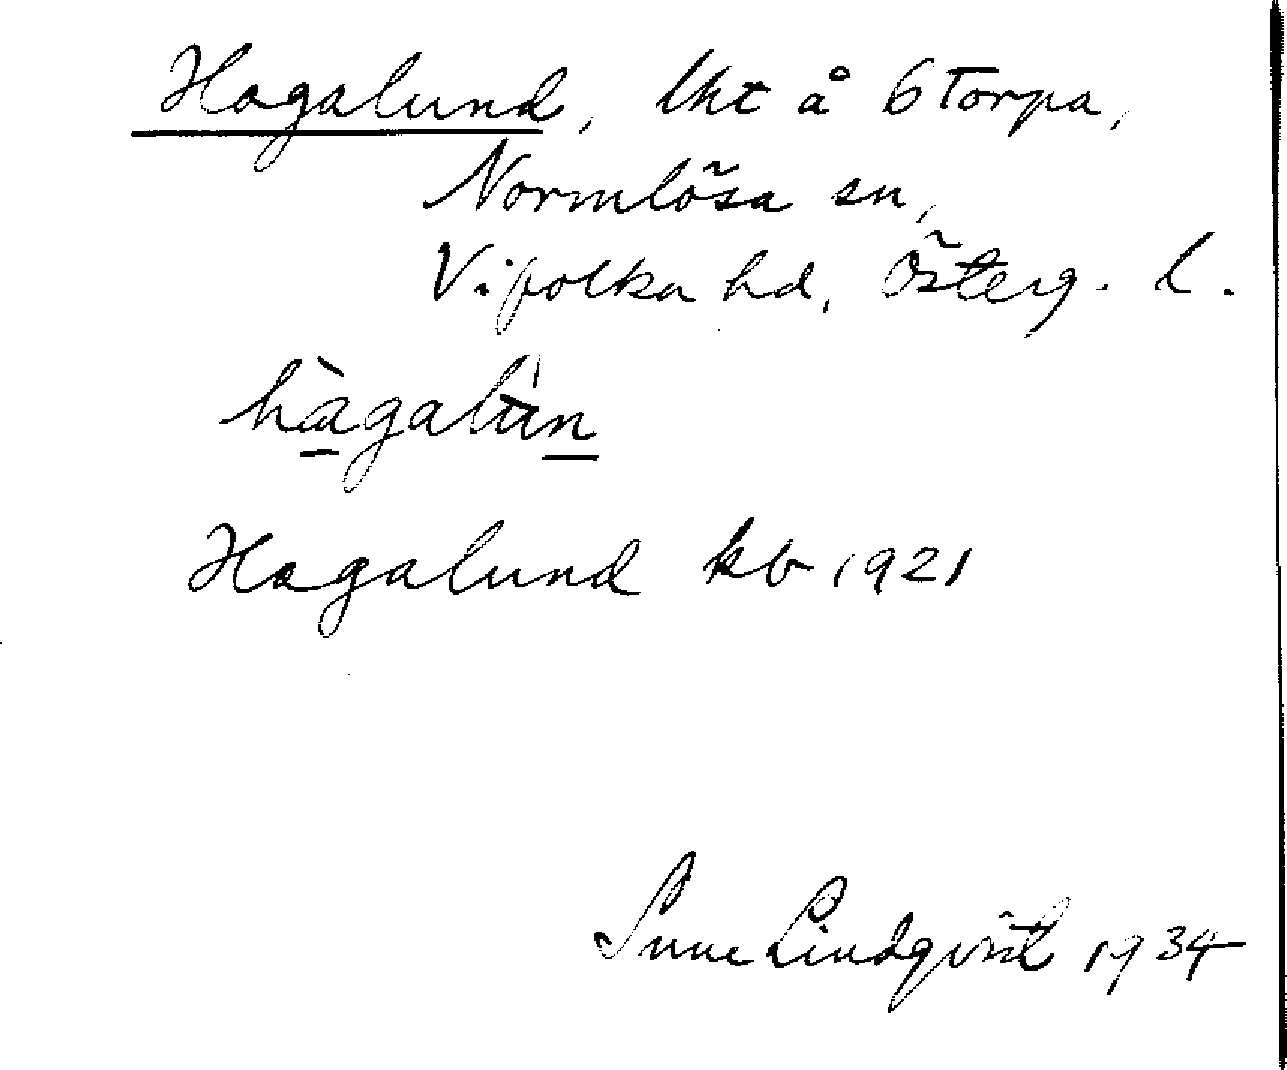 Hagalund, lht å 6 Torpa,
Normlösa sn,
Vifolka hd, Österg. l.
hàgalun
Hagalund kb 1921
Sune Lindqvist 1934